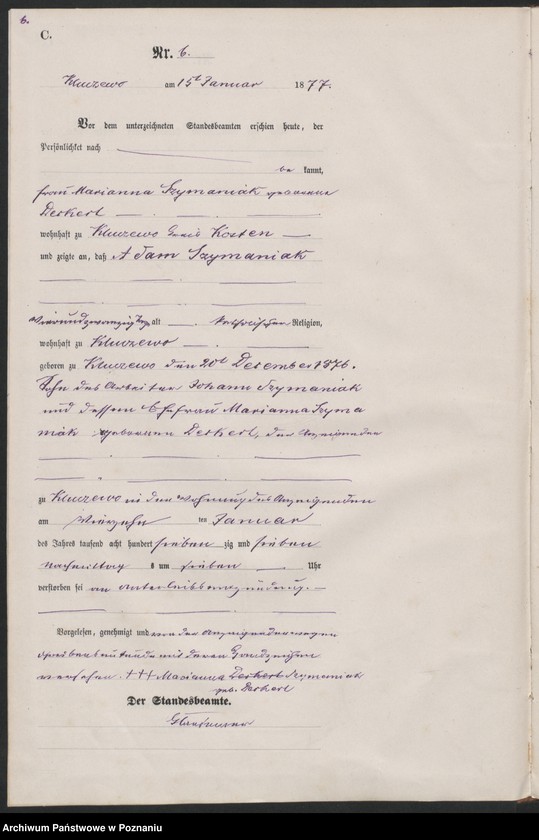 6.
C.
Nr. 6.
Kluczewo am 15t Januar 1877.
Vor dem unterzeichneten Standesbeamten erschien heute, der
Persönlichkeit nach
be kannt,
Frau Marianna Szymaniak geborene
Derkert
wohnhaft zu Kluczewo Kreis Kosten
und zeigte an, daß Adam Szymaniak
Vierundzwanzig Tage alt katholischer Religion,
wohnhaft zu Kluczewo
geboren zu Kluczewo den 20t Dezember 1876.
Sohn des Arbeiter Johann Szymaniak
und dessen Ehefrau Marianna Szyma
niak geborenen Derkert, der Anzeigenden
zu Kluczewo in der Wohnung des Anzeigenden
am Vierzehn ten Januar
des Jahres tausend acht hundert sieben zig und sieben
Nachmittag s um sieben Uhr
verstorben sei an Unterleibsentzündung.
Vorgelesen, genehmigt und von der Anzeigenden wegen
Schreibensunkunde mit deren Handzeichen
versehen. +++ Marianna Derkert Szymaniak
geb. Derkert
Der Standesbeamte.
Archiwum Państwowe w Poznaniu